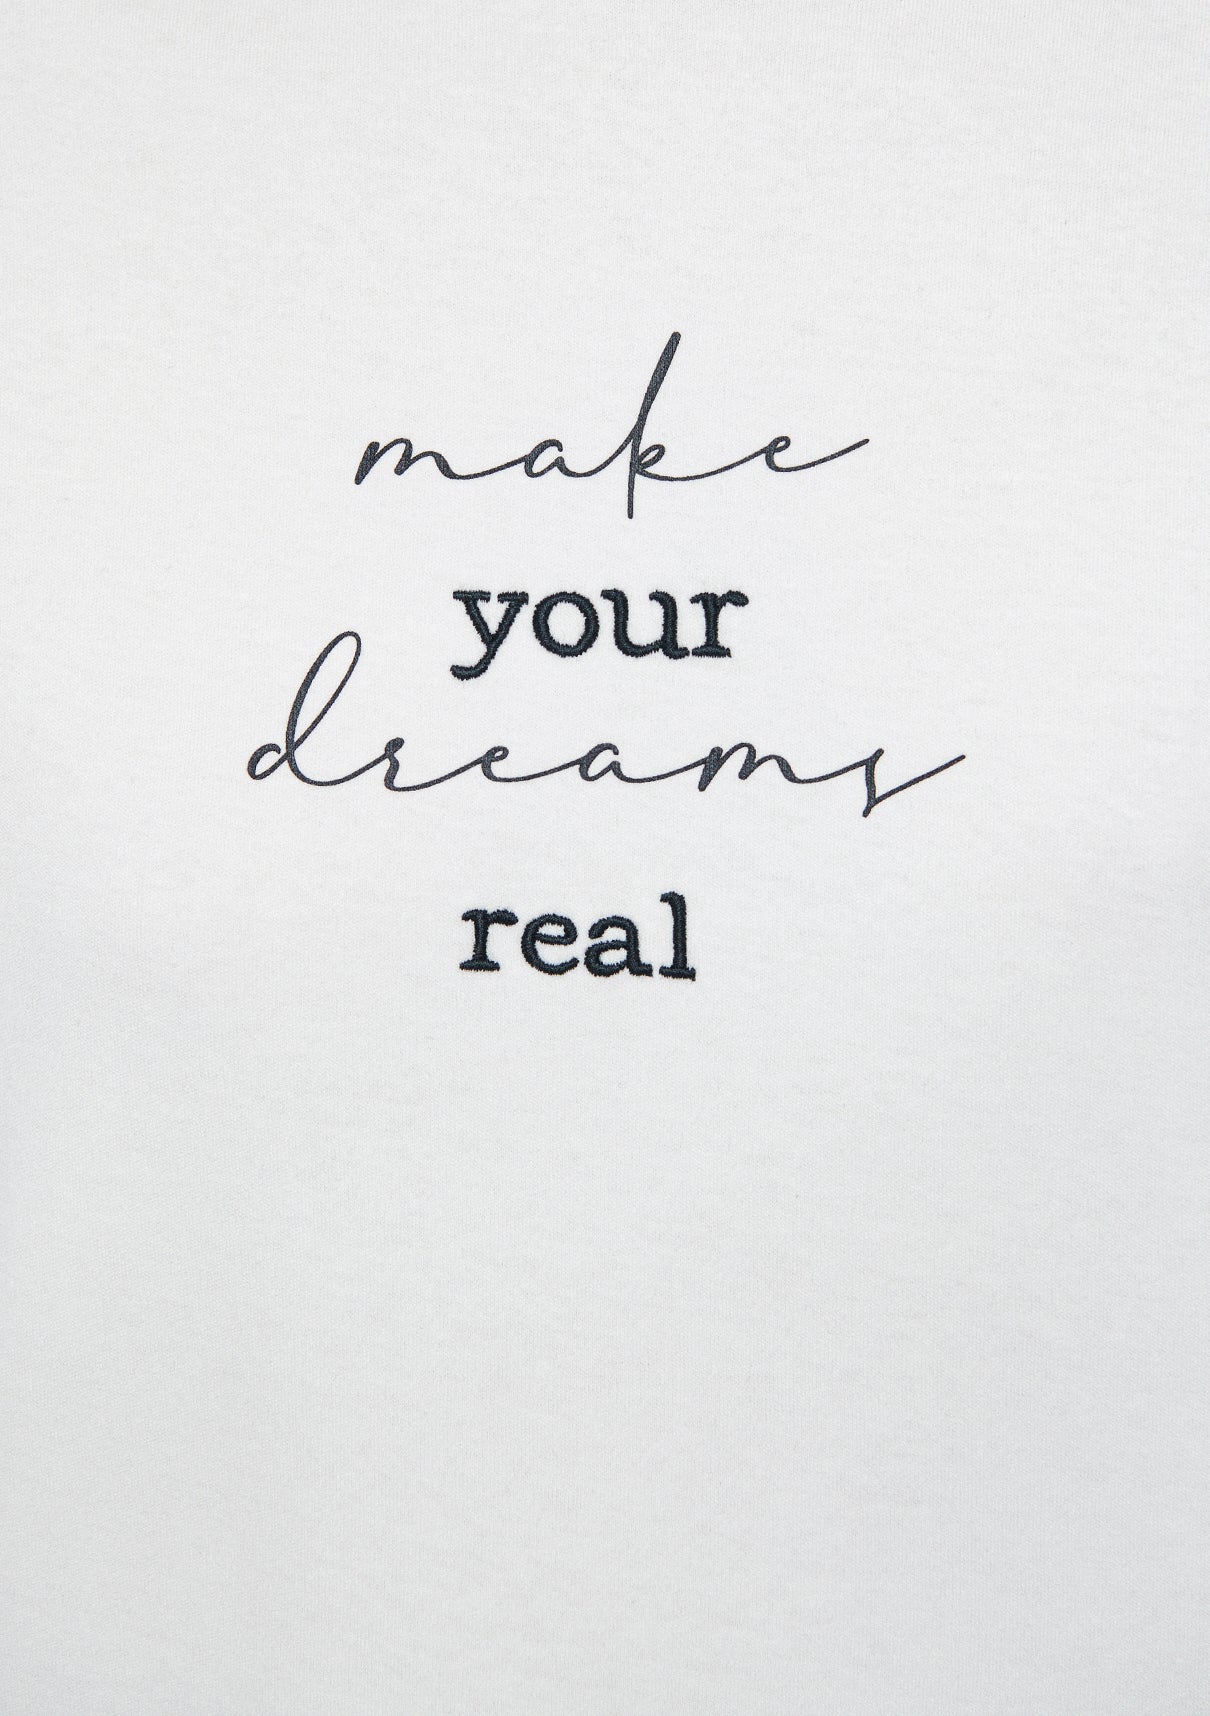 make
your
dreams
real